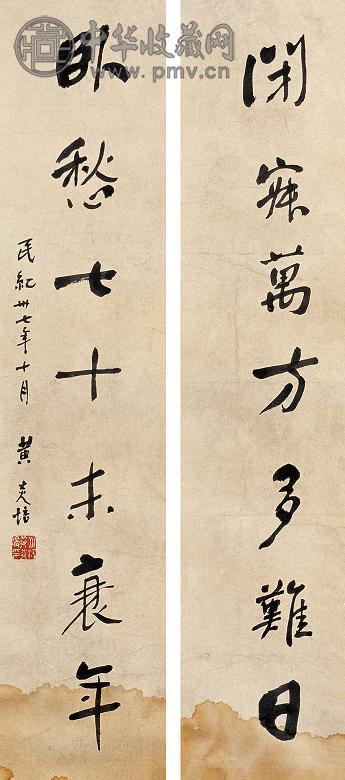 中华收藏网
www.pmv.cn
閑寐萬方多難日
臥愁七十未衰年
民紀卅七年十月 黄炎培